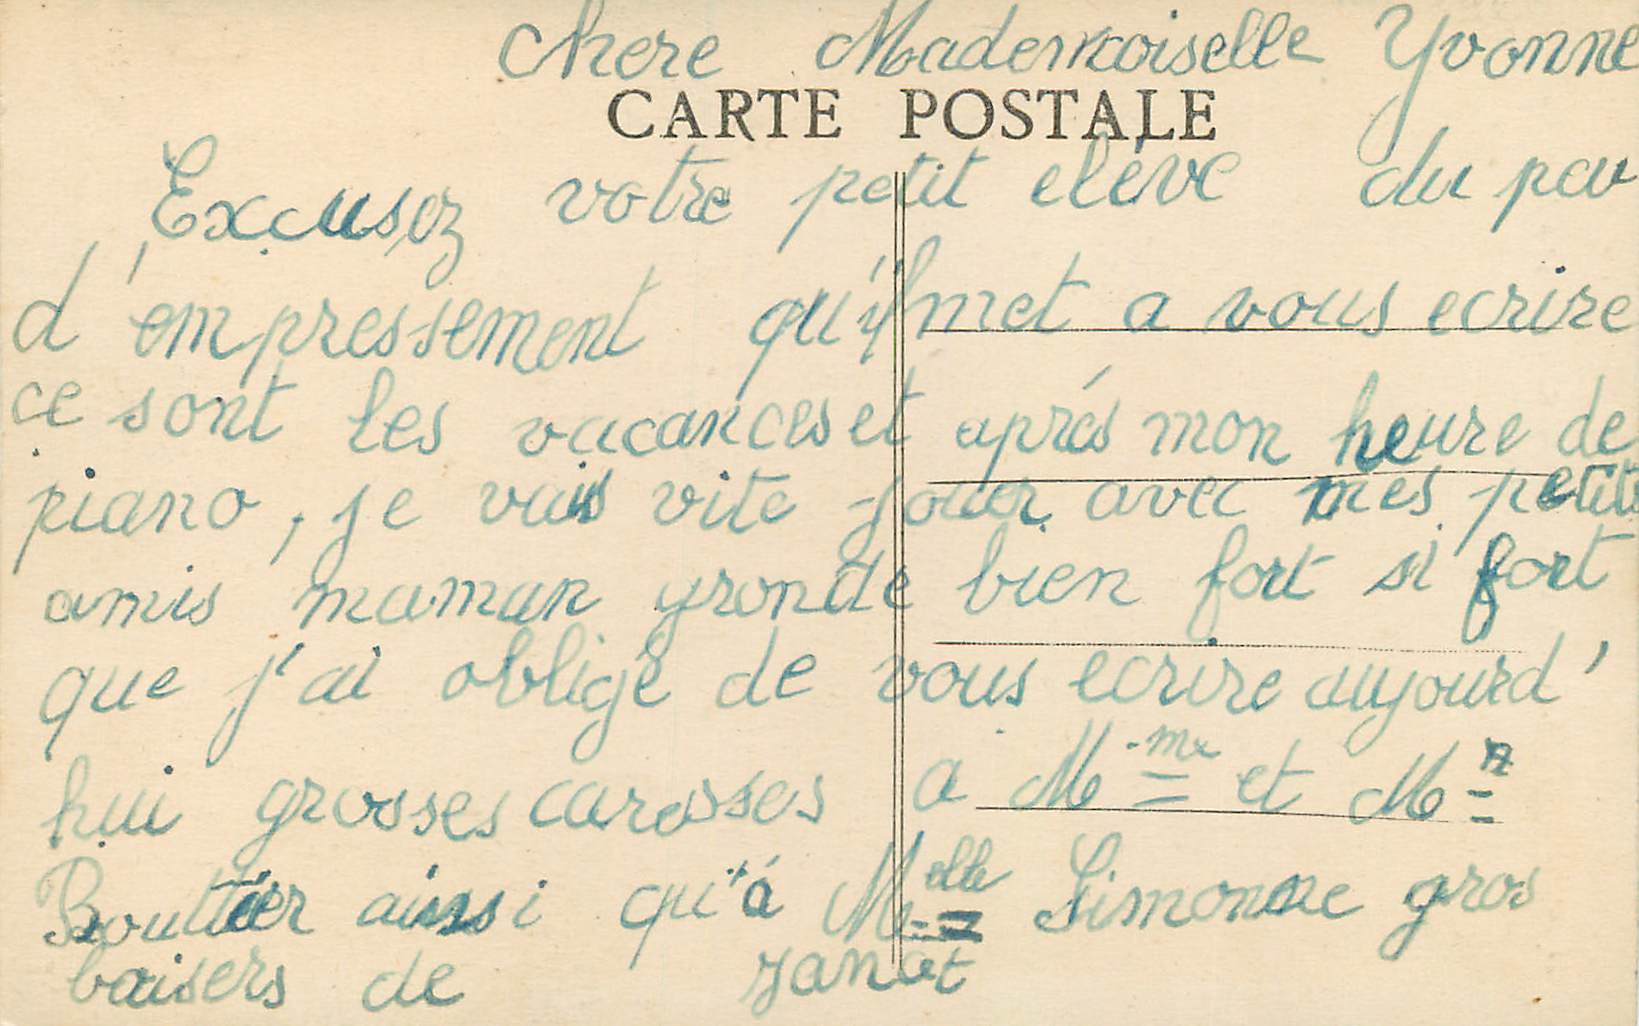 chere Mademoiselle Yvonne
CARTE POSTALE
Excusez votre petit elève du peu
d'empressement qu'il met a vous ecrire
ce sont les vacances et aprés mon heure de
piano, je vais vite jouer avec mes petits
amis maman gronde bien fort si fort
que j'ai obligé de vous ecrire aujourd'
hui grosses caresses a Mme et Mr
Bouttier ainsi qu'á Melle Simonne gros
baisers de